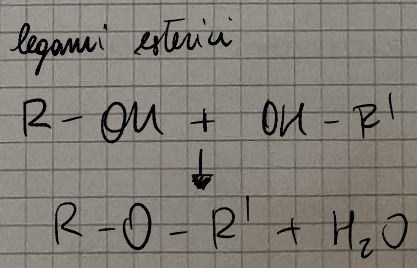 legami esterici
R - OH + OH - R'
↓
R - O - R' + H₂O